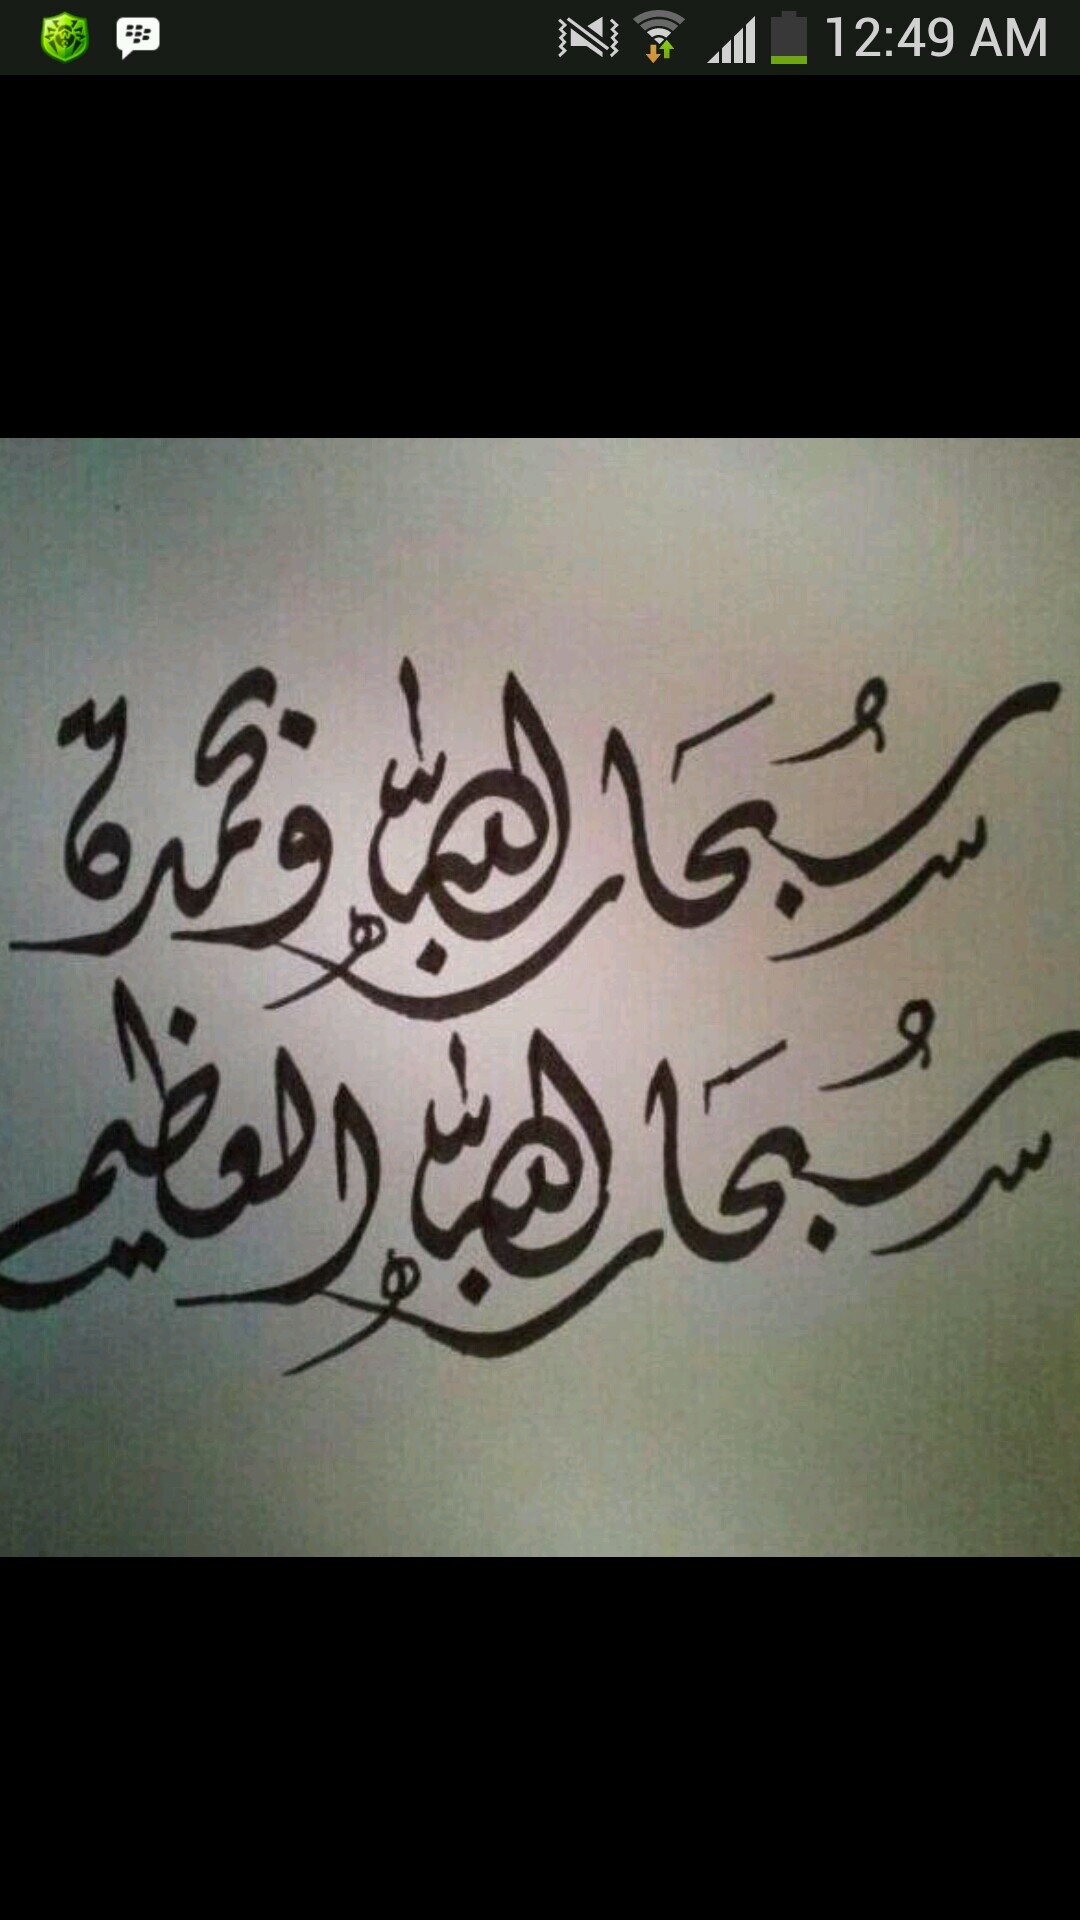 12:49 AM
سُبحَان الله وبحمدة
سُبحَان الله العظيم